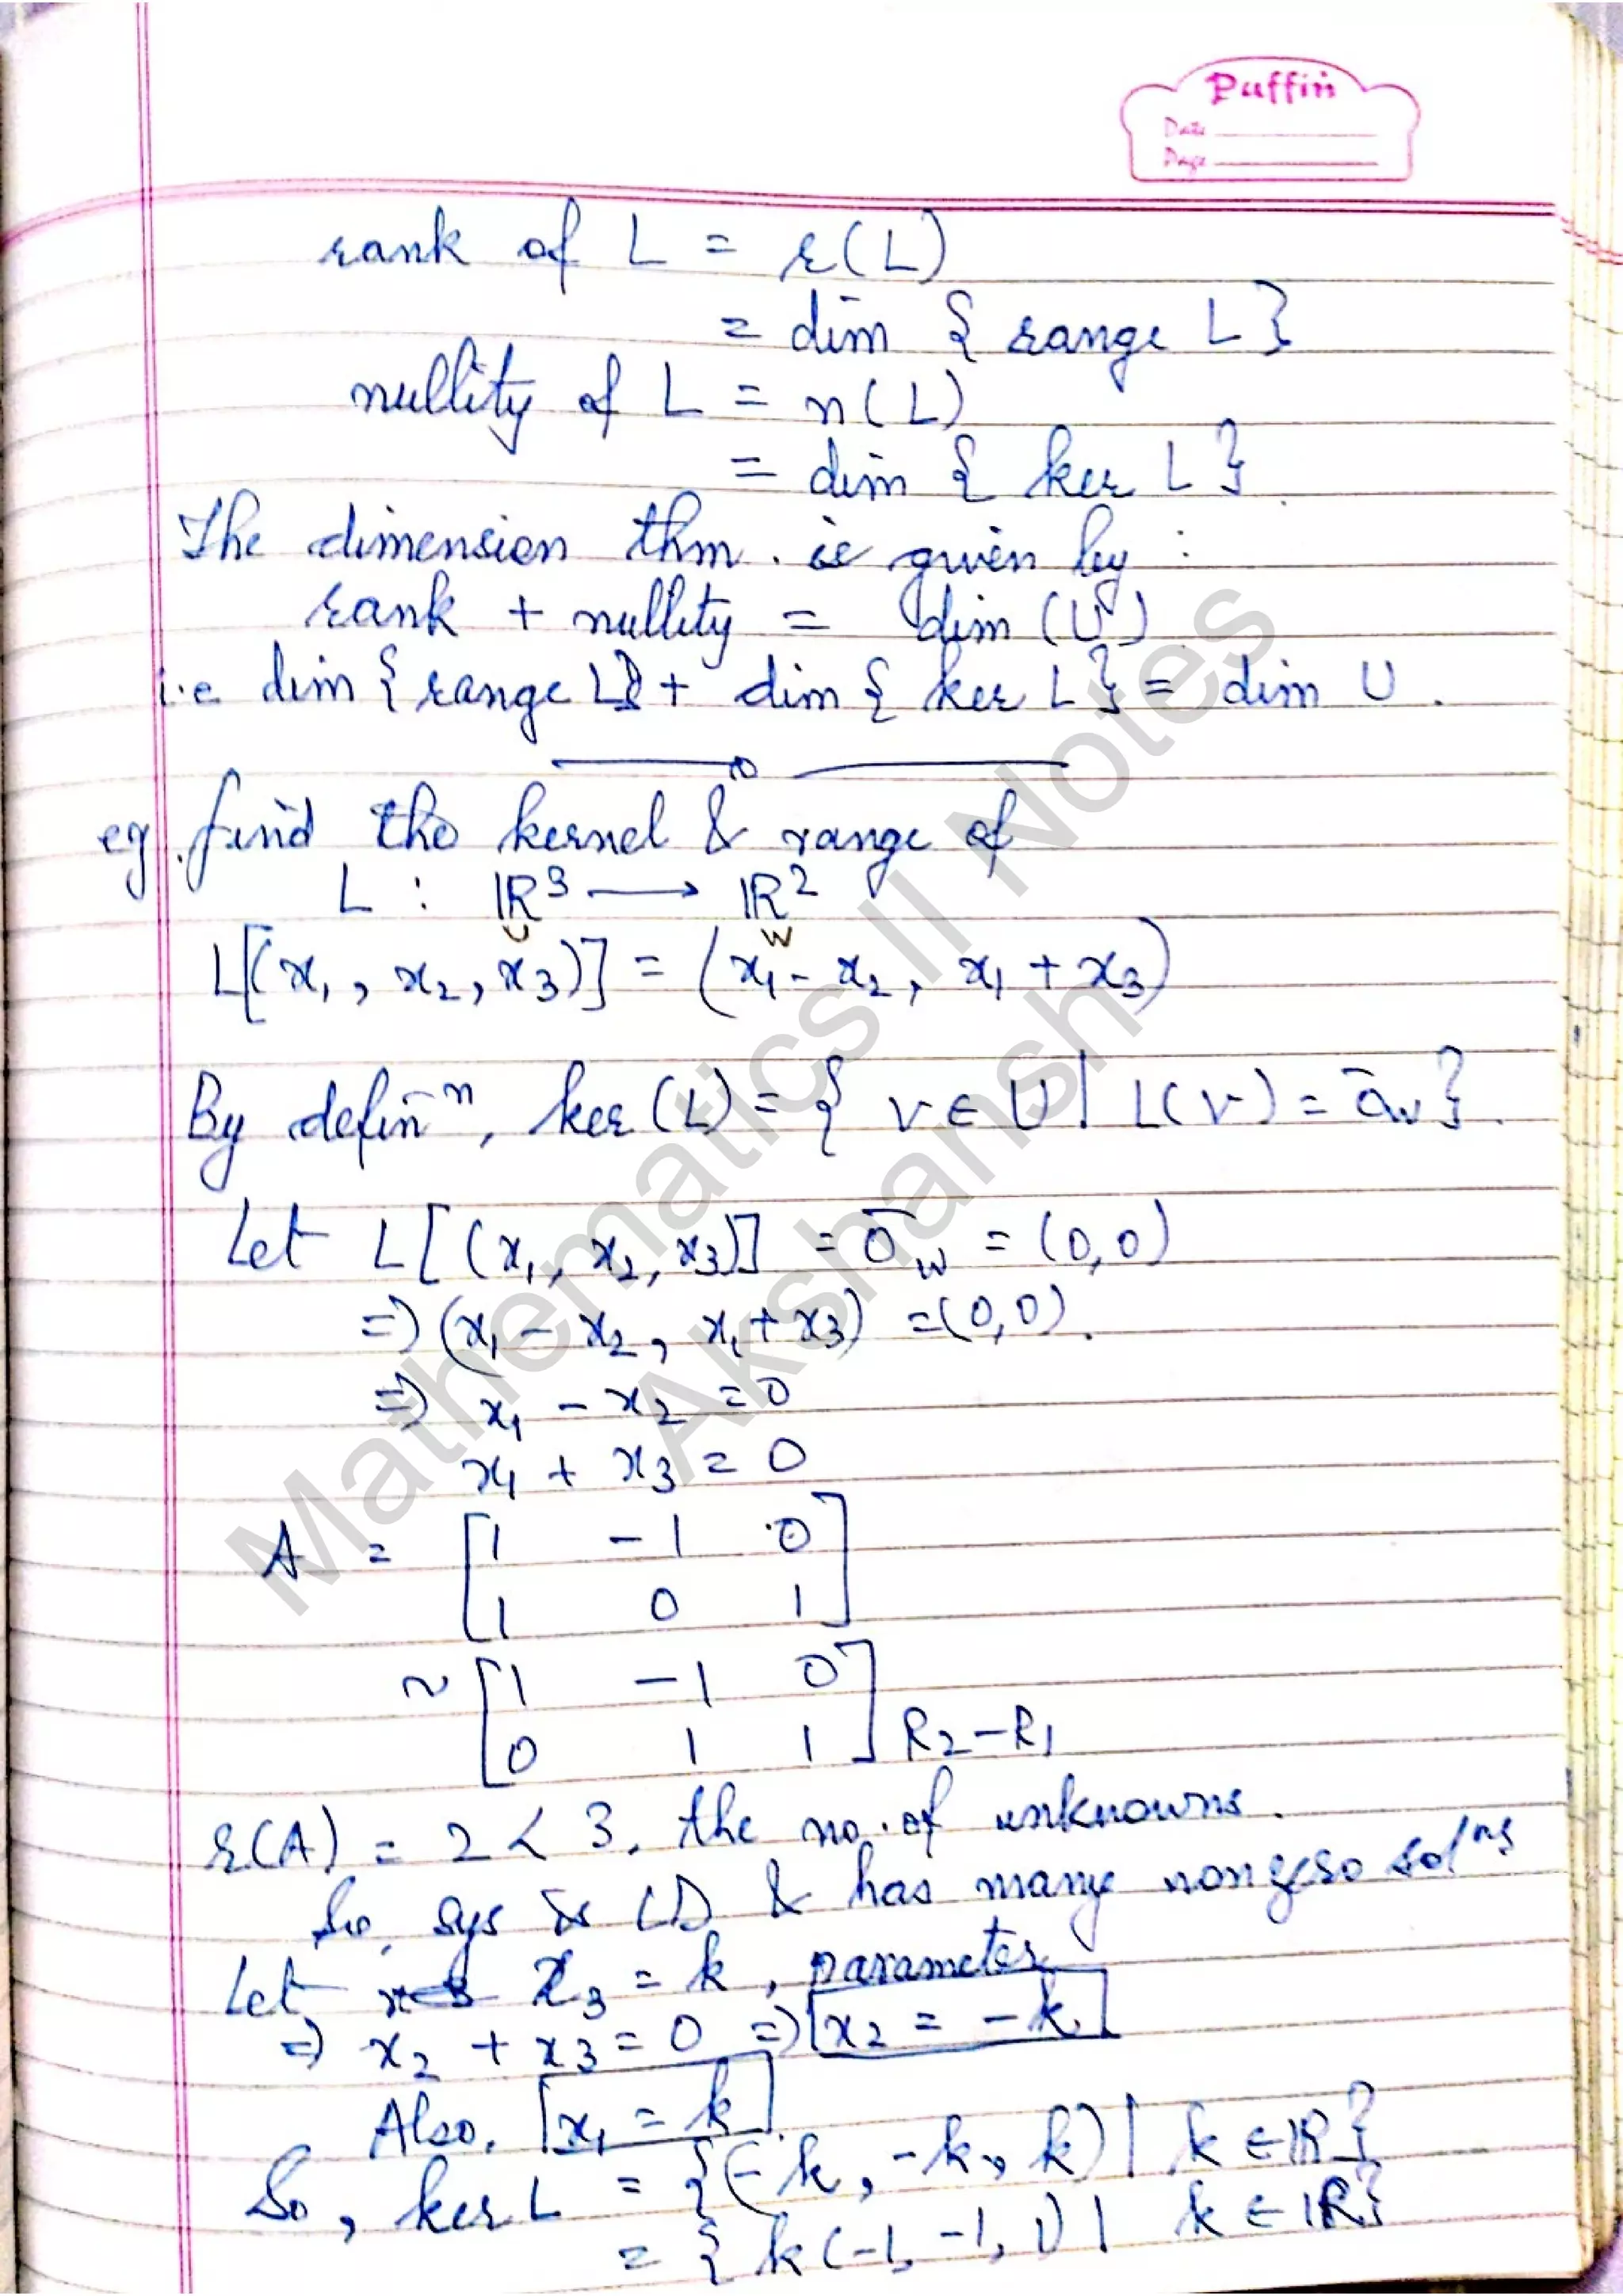 Puffin
Date
Page
rank of L = r(L)
= dim { range L}
nullity of L = n(L)
= dim { ker L}.
The dimension thm. is given by :
rank + nullity = dim (U)
i.e dim {range L} + dim { ker L} = dim U .
eg. find the kernel & range of
L : ℝ³ ⟶ ℝ²
U W
L[(x₁, x₂, x₃)] = (x₁ - x₂, x₁ + x₃)
By definⁿ, ker (L) = { v ∈ U | L(v) = ō_w }.
Let L[(x₁, x₂, x₃)] = ō_w = (0,0)
⇒ (x₁ - x₂, x₁ + x₃) = (0,0).
⇒ x₁ - x₂ = 0
x₁ + x₃ = 0
A = [1 -1 0
1 0 1]
~ [1 -1 0
0 1 1] R₂-R₁
r(A) = 2 < 3, the no. of unknowns.
So, sys is LD & has many nonzero solⁿs
Let x₃ = k, parameter
⇒ x₂ + x₃ = 0 ⇒ x₂ = -k.
Also, x₁ = k.
So, ker L = {(-k, -k, k) | k ∈ ℝ}
= { k(-1, -1, 1) | k ∈ ℝ}
Mathematics II Notes
Akshansh